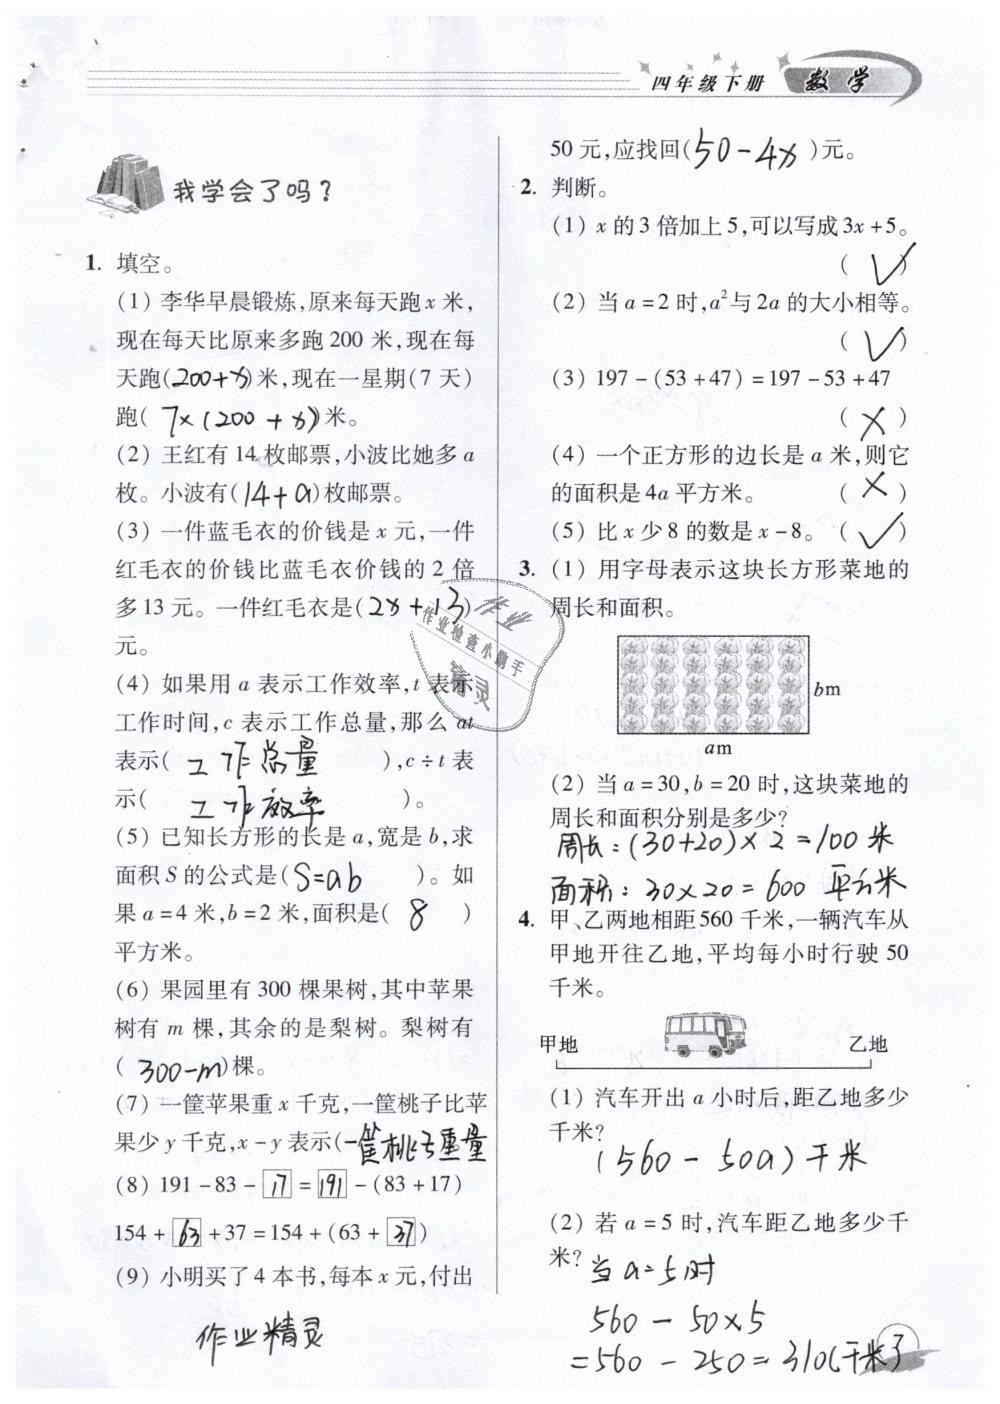 四年级下册 数学
我学会了吗?
1. 填空。
(1) 李华早晨锻炼,原来每天跑x米,
现在每天比原来多跑200米,现在每
天跑(200+x)米,现在一星期(7天)
跑( 7×(200+x))米。
(2) 王红有14枚邮票,小波比她多a
枚。小波有(14+a)枚邮票。
(3) 一件蓝毛衣的价钱是x元,一件
红毛衣的价钱比蓝毛衣价钱的2倍
多13元。一件红毛衣是(2x+13)
元。
(4) 如果用a表示工作效率,t表示
工作时间,c表示工作总量,那么at
表示( 工作总量 ),c÷t表
示( 工作效率 )。
(5) 已知长方形的长是a,宽是b,求
面积S的公式是(S=ab )。如
果a=4米,b=2米,面积是( 8 )
平方米。
(6) 果园里有300棵果树,其中苹果
树有m棵,其余的是梨树。梨树有
( 300-m)棵。
(7) 一筐苹果重x千克,一筐桃子比苹
果少y千克,x-y表示(一筐桃子重量
(8) 191-83-17=191-(83+17)
154+63+37=154+(63+37)
(9) 小明买了4本书,每本x元,付出
作业精灵
50元,应找回(50-4x )元。
2. 判断。
(1) x的3倍加上5,可以写成3x+5。
( ✓ )
(2) 当a=2时,a²与2a的大小相等。
( ✓ )
(3) 197-(53+47)=197-53+47
( × )
(4) 一个正方形的边长是a米,则它
的面积是4a平方米。 ( × )
(5) 比x少8的数是x-8。 ( ✓ )
3. (1) 用字母表示这块长方形菜地的
周长和面积。
bm
am
(2) 当a=30,b=20时,这块菜地的
周长和面积分别是多少?
周长:(30+20)×2=100米
面积:30×20=600 平方米
4. 甲、乙两地相距560千米,一辆汽车从
甲地开往乙地,平均每小时行驶50
千米。
甲地 乙地
(1) 汽车开出a小时后,距乙地多少
千米?
(560-50a)千米
(2) 若a=5时,汽车距乙地多少千
米?
当a=5时
560-50×5
=560-250=310(千米)
3
作业
作业检查小助手
精灵